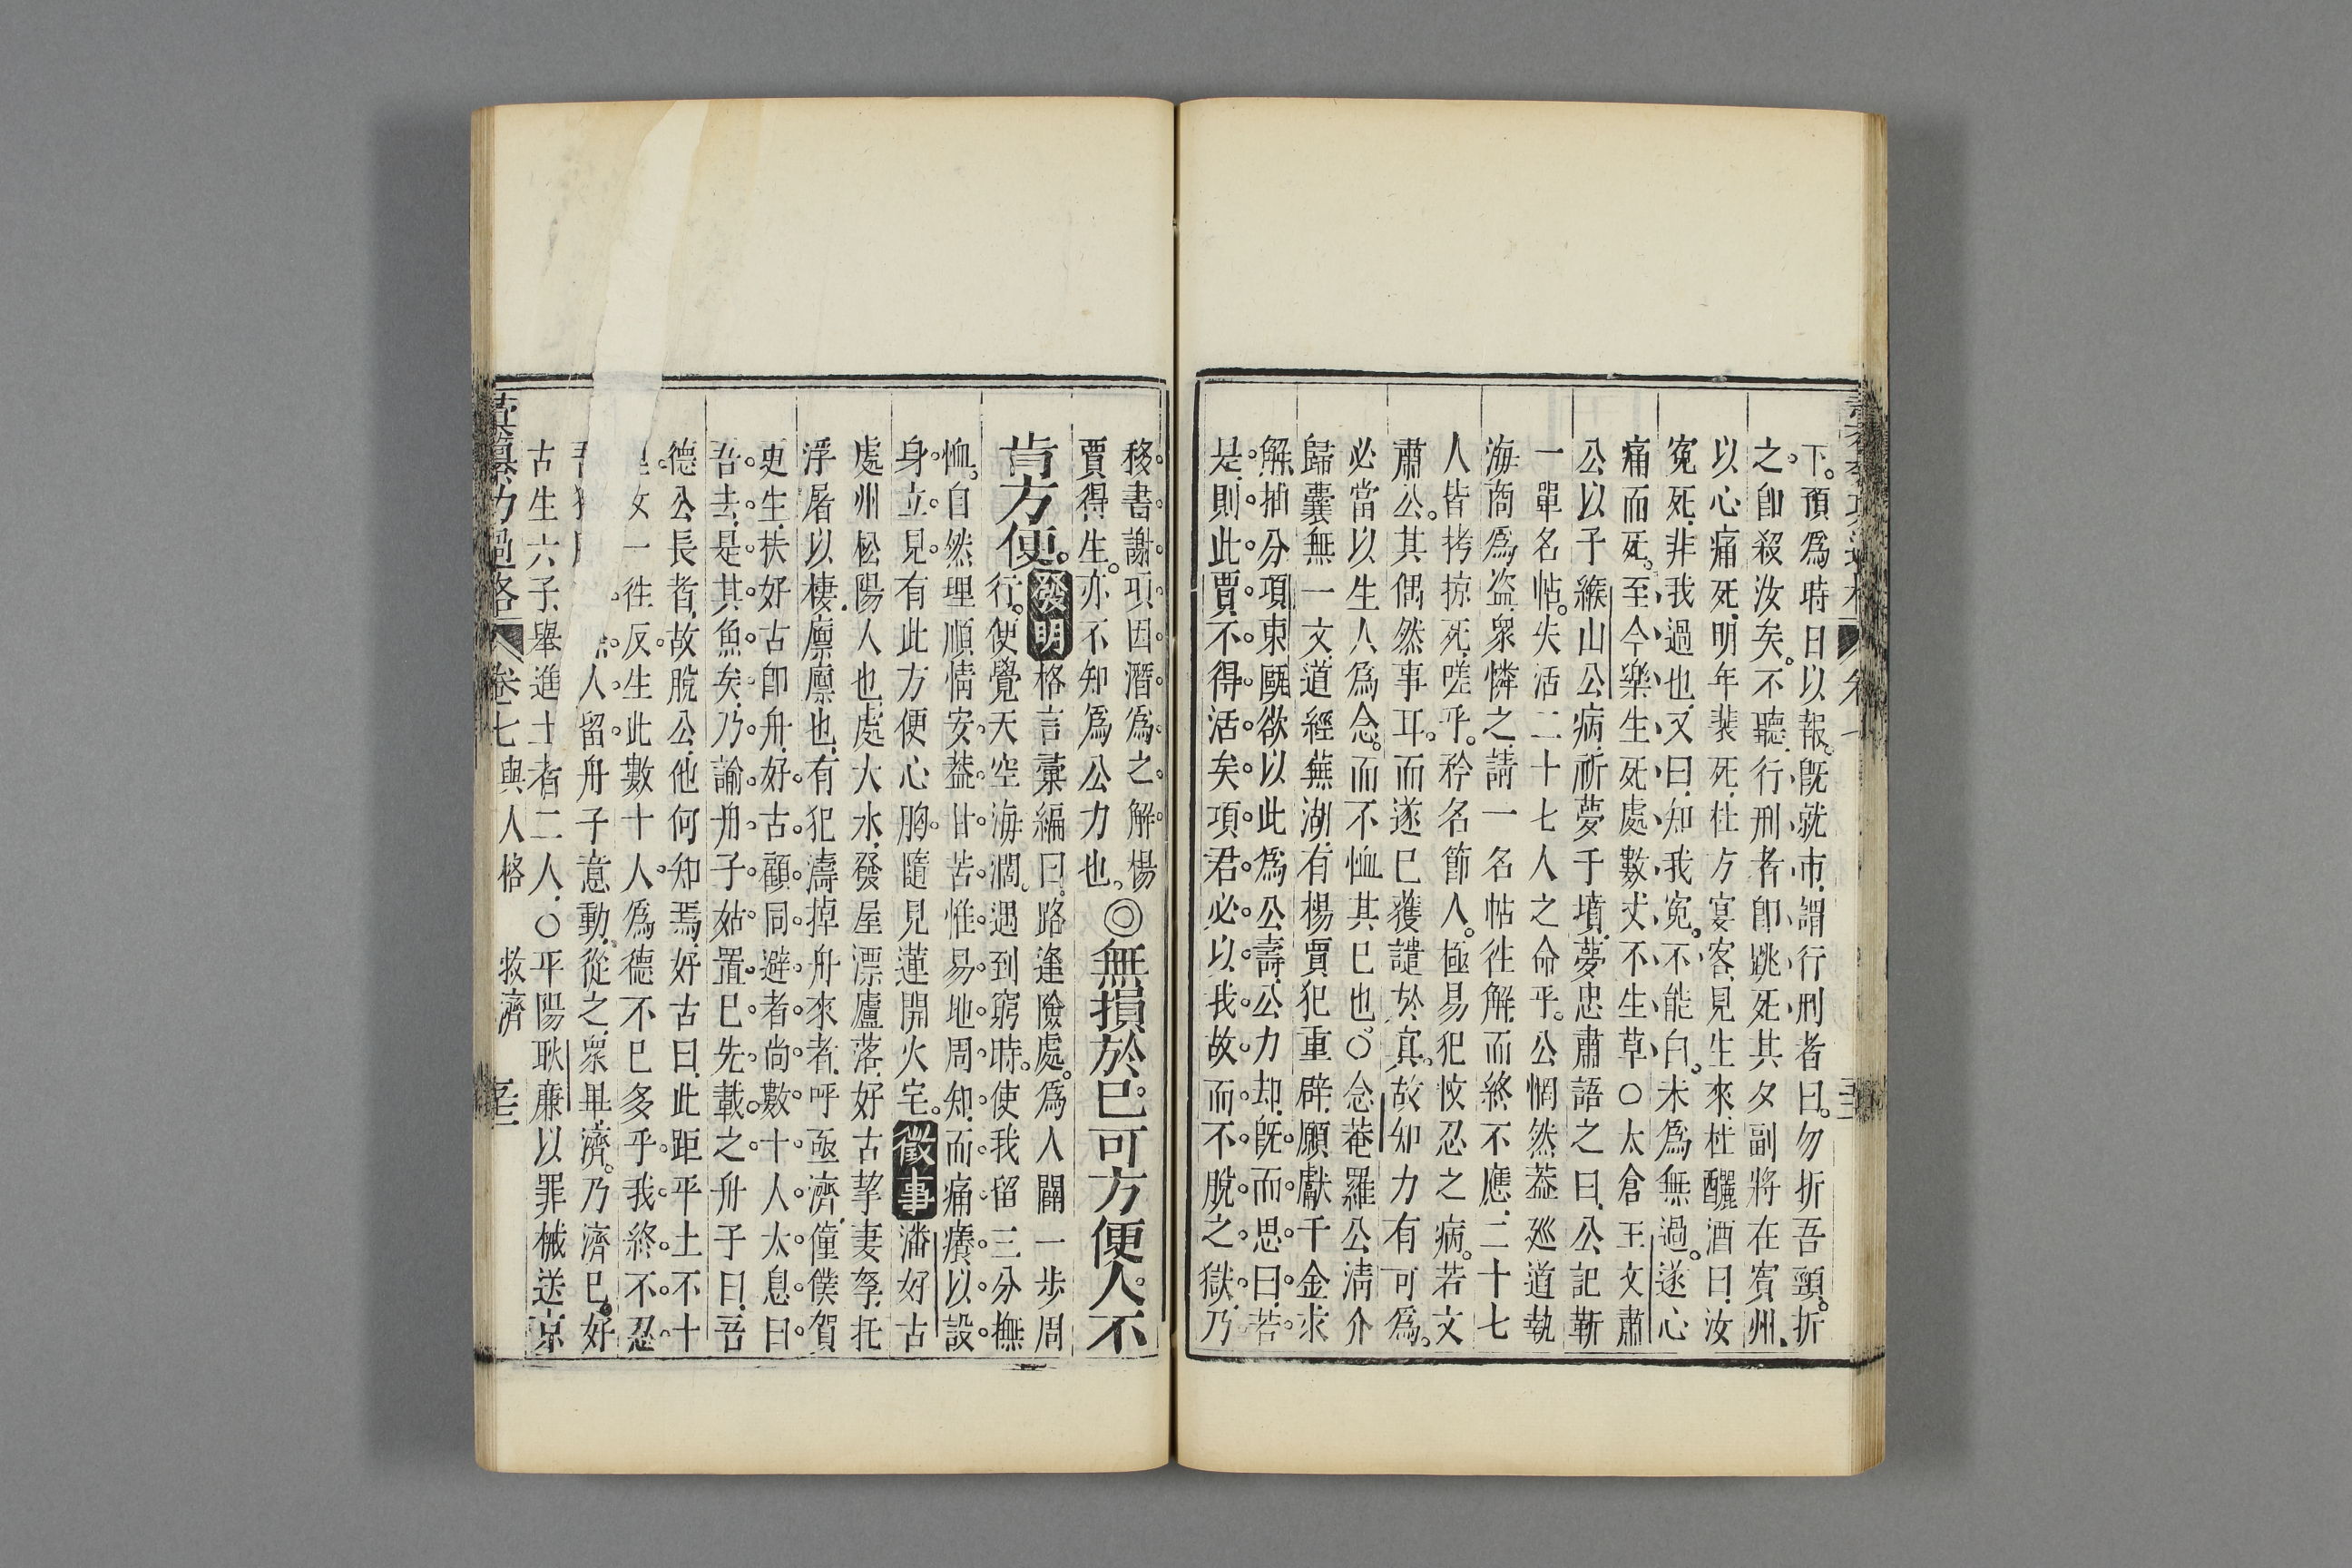 下。預為時日以報。旣就市。謂行刑者曰。勿折吾頸。折
之。卽殺汝矣。不聽。行刑者卽跳死。其夕副將在賓州、
以心痛死。明年裴死。杜方宴客。見生來。杜釃酒曰。汝
寃死。非我過也。又曰。知我寃。不能白。未為無過。遂心
痛而死。至今樂生死處數丈不生草○太倉王文肅
公以子緱山公病。祈夢于墳。夢忠肅語之曰。公記靳
一單名帖。失活二十七人之命乎。公惘然。葢廵道執
海商為盗。衆憐之。請一名帖往解。而終不應。二十七
人皆拷掠死。嗟乎。矜名節人。極易犯忮忍之病。若文
肅公。其偶然事耳。而遂巳獲譴於㝠。故知力有可為。
必當以生人為念。而不恤其巳也。○念菴羅公。清介
歸囊無一文。道經蕪湖。有楊賈犯重辟。願獻千金求
解。抽分項東甌欲以此為公壽。公力却。旣而思曰。若
是。則此賈不得活矣。項君必以我故。而不脫之獄。乃
移書謝項。因潛為之解。楊
賈得生。亦不知為公力也。◎無損於巳。可方便人。不
肯方便。發明格言彙編曰。路逢險處。為人闢一步周
行。便覺天空海濶。遇到窮時。使我留三分撫
恤。自然理順情安。葢甘苦惟易地周知。而痛癢以設
身立見。有此方便心胸。隨見蓮開火宅。徵事潘好古
處州松陽人也。處大水。發屋漂廬落。好古挈妻孥。托
浮屠以棲。廪廪也。有犯濤掉舟來者。呼亟濟。僮僕賀
更生。扶好古卽舟。好古顧同避者尚數十人。太息曰
吾去。是其魚矣。乃諭舟子姑置巳。先載之。舟子曰。吾
德公長者。故脫公。他何知焉。好古曰。此距平土不十
一徃反。生此數十人。為德不巳多乎。我終不忍
人留。舟子意動。從之。衆畢濟。乃濟巳。好
古生六子。舉進士者二人。○平陽耿亷以罪械送京
彚纂功過格
卷七與人格
救濟